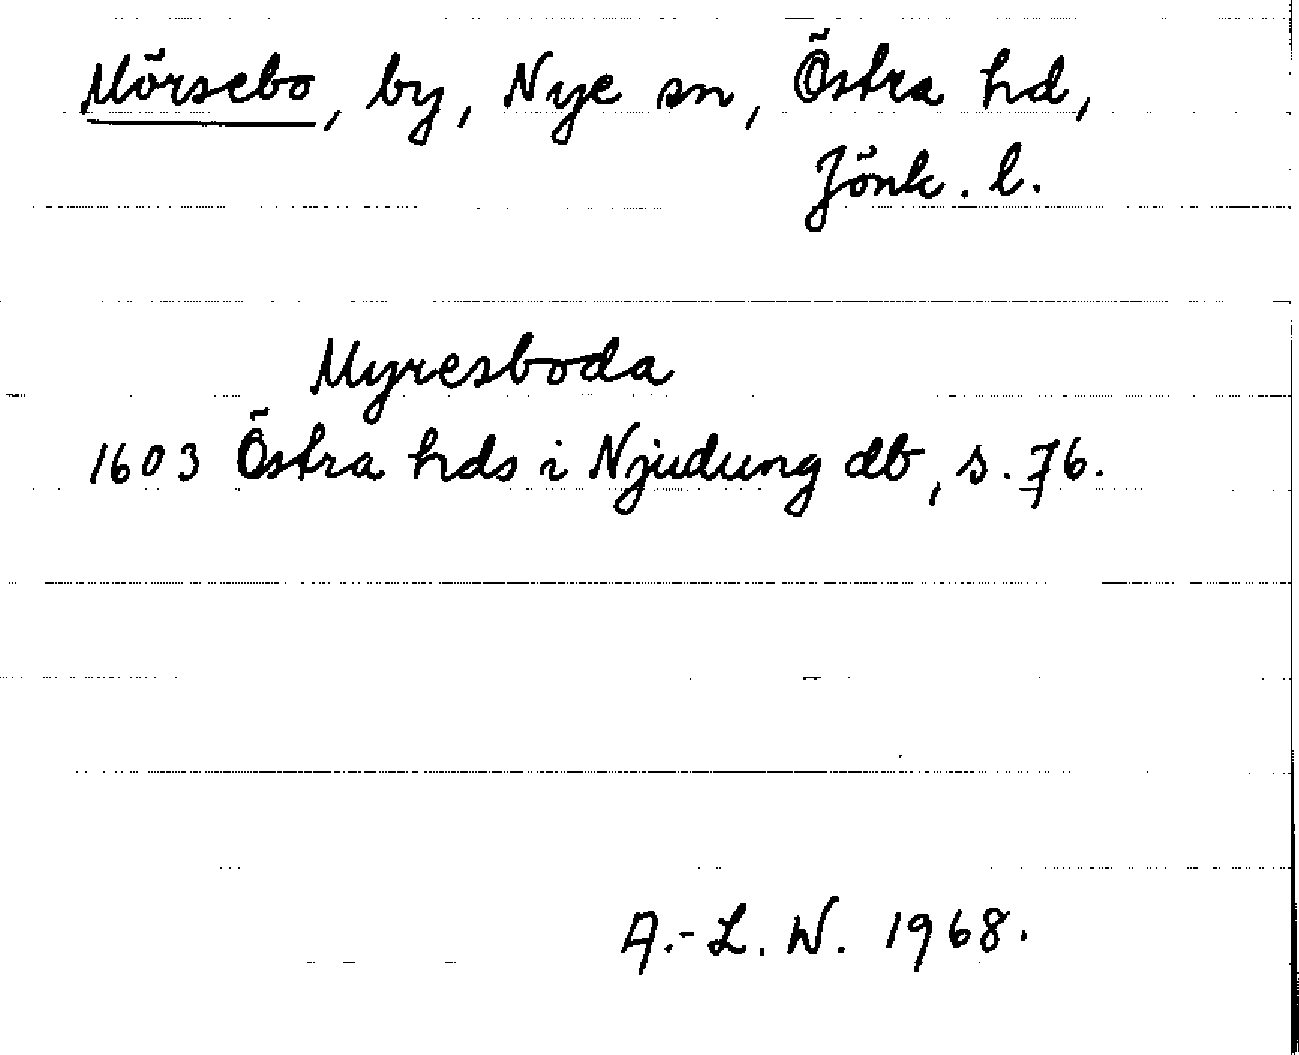 Mörsebo, by, Nye sn, Östra hd,
Jönk. l.
Myresboda
1603 Östra hds i Njudung db, s. 76.
A.-L. W. 1968.